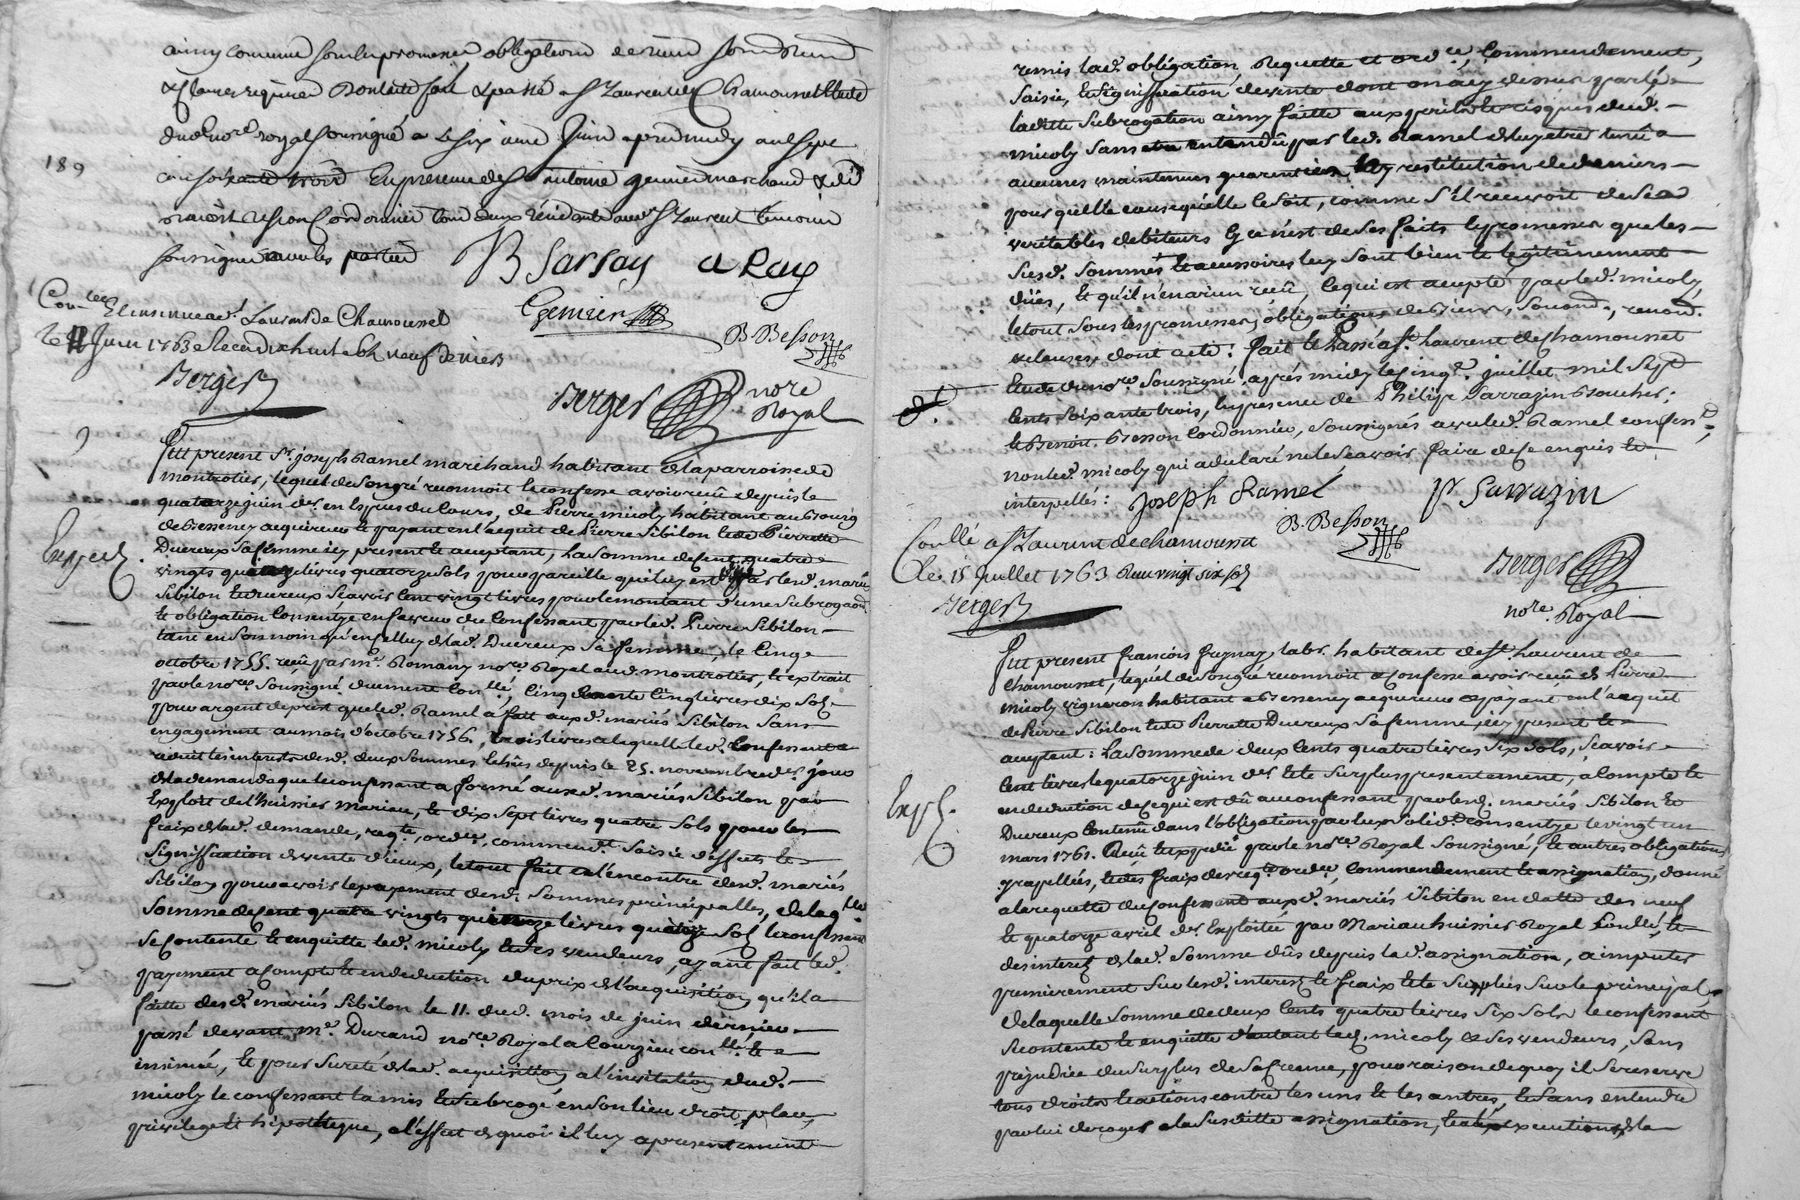 ainsy comme sous les promesses, obligations de
et clauses requises dont acte fait & passé a St Laurent de Chamousset Etude
dud. nore royal soussigné le six juin apres midy mil sept
189
cens soixante trois En presence de Sr antoine genier marchand & de
Besson Cordonnier tous deux résidants aud. St Laurent temoins
soussignés avec les parties
B Sarsay a Ray
Genier
B. Besson
Conllé Et insinué a St Laurent de Chamousset
le juin 1763 Recu dix huit neuf deniers
Berger
Berger nore Royal
Fut present Sr. joseph Ramel marchand habitant de la parroisse de
montrotier, lequel de son gré reconnoit & confesse avoir reçû depuis le
quatorze juin der. en Especes du Cours, de Pierre micoly habitant au Bourg
de Bessenay acquereur & payant en l'acquit de Pierre Sibilon & de Pierrette
Expedié.
Ducreux Sa femme icy present & acceptant, La somme de Cent quatre
vingts livres quatorze Sols pour pareille qui luy est düe par lesd. mariés
Sibilon & Ducreux Scavoir Cent vingt livres pour le montant d'une Subrogaon.
& obligation Consentye en faveur du Confessant par led. Pierre Sibilon
tant en Son nom qu'en celuy de lad. Ducreux Sa femme, le Cinq
octobre 1755. reçûe par me. Romany nore. Royal aud. montrotier, & extrait
par le nore. Soussigné duement Conllé, Cinq livres dix Sols
pour argent de prest que led. Ramel a fait auxd. mariés Sibilon Sans
engagement au mois d'octobre 1756., trois livres a laquelle led. Confessant a
réduit les interests desd. deux sommes echûs depuis le 25. novembre der. jour
de la demande que le confessant a formé auxd. mariés Sibilon par
Exploit de l'huissier Mariau, & dix Sept livres quatre Sols pour les
fraix de lad. demande, reqte, ordce, commendt. Saisie d'effets &
Signiffication de vente d'iceux, le tout fait a l'encontre desd. mariés
Sibilon pour avoir le payement desd. Sommes principalles, de laqlle
Somme de Cent quatre vingts livres quatorze Sols le confessant
Se Contente & en quitte led. micoly & Ses vendeurs, ayant fait led.
payement a compte & en deduction du prix de l'acquisition qu'il a
faitte desd. mariés Sibilon le 11. dud. mois de juin dernier
passé devant me. Durand nore. Royal a Courzieu conllé &
insinué, & pour Sureté de lad. acquisition a l'invitation dud.
micoly le confessant l'a mis & Subrogé en Son lieu droit, place,
privilege & hipotheque, a l'effet de quoi il luy a presentement
remis lad. obligation Requette et ordce, Commendement,
Saisie, & Signiffication de vente dont on a cy dessus parlé,
laditte Subrogation ainsy faitte aux perils & risques dud.
micoly Sans entendû par led. Ramel de luy etre tenû a
aucunes maintenues garenties, ny restitution de deniers
pour quelle cause qu'elle Soit, comme S'il recevoit de Ses
veritables debiteurs Si ce n'est de Ses faits & promesses que les
Susd. Sommes & accessoires luy Sont bien & legitimement
dües, & qu'il n'en a rien reçû, ce qui est accepté par led. micoly
le tout Sous les promesses, obligations de biens, Soumd., renond.
& clauses dont acte: fait & Passé a St. Laurent de Chamousset
Etude du nore. Soussigné, après midy le cinqe. juillet mil Sept
cents Soixante trois, En presence de Philipe Sarrazin Boucher,
& Benoit. Besson Cordonnier, Soussignés avec led. Ramel confesst.
non led. micoly qui a declaré ne le Scavoir faire de ce enquis &
interpellé: Joseph Ramel P Sarrazin
B. Besson
Conllé a St Laurent de chamousset
le 15 Juillet 1763 Reçu vingt six sols
Berger
Berger
nore. Royal
Fut present françois fregnay labr. habitant de St. Laurent de
Chamousset, lequel de Son gré reconnoit & Confesse avoir reçû de Pierre
micoly vigneron habitant a Bessenay acquereur & payant en l'acquit
de Pierre Sibilon & de Pierrette Ducreux Sa femme, icy present &
acceptant: La Somme de deux Cents quatre livres Six Sols, Scavoir
Cent livres le quatorze juin der. & le Surplus presentement, a Compte &
Expé.
en deduction de ce qui est dû au confessant par lesd. mariés Sibilon &
Ducreux Contenû dans l'obligation par eux Solidt. consentye le vingt un
mars 1761. Reçûe & expediée par le nore Royal Soussigné, & autres obligations
y rapellées, & des fraix de reqte ordce, Commendement & assignation, donné
a la requette du Confessant auxd. mariés Sibilon en datte des neuf
& quatorze avril der. Exploitée par Mariau huissier Royal Conllé, &
des interets de lad. Somme dûs depuis lad. assignation, a imputer
premierement Sur lesd. interets & fraix & le Surplus Sur le principal
de laquelle Somme de deux Cents quatre livres Six Sols le confessant
Se contente & en quitte d'autant led. micoly & Ses vendeurs, Sans
préjudice du Surplus de Sa Creance, pour raison de quoy il Se reserve
tous droits & actions contre les uns & les autres, & Sans entendre
par lui deroger a la Susditte assignation, & aux executions de la